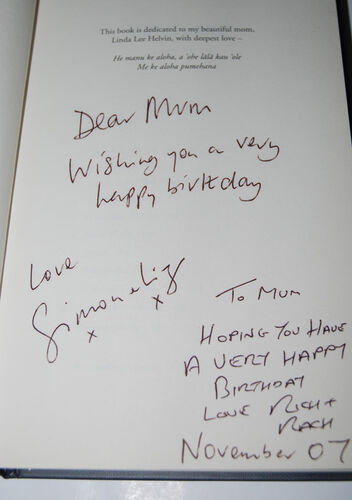 This book is dedicated to my beautiful mom,
Linda Lee Helvin, with deepest love –
He manu ke aloha, a 'ohe lālā kau 'ole
Me ke aloha pumehana
Dear Mum
Wishing you a very
happy birthday
Love
Simon & Liz
x x
To Mum
HOPING YOU HAVE
A VERY HAPPY
BIRTHDAY
LOVE RICH +
RACH
November 07